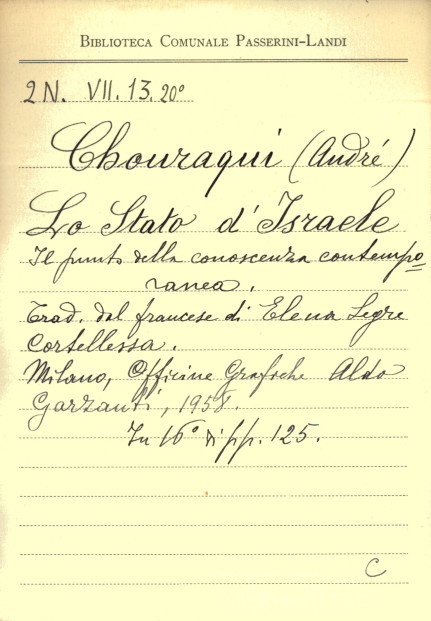 BIBLIOTECA COMUNALE PASSERINI-LANDI
2 N. VII. 13. 20°
Chouraqui (André)
Lo Stato d'Israele
Il punto della conoscenza contempo
ranea.
Trad. dal francese di Elena Segre
Cortellessa.
Milano, Officine Grafiche Aldo
Garzanti, 1958.
In 16° di pp. 125.
C